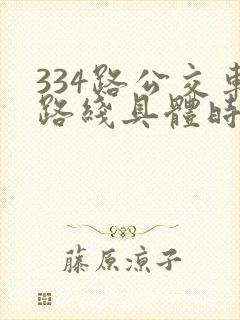 334路公交車
路綫具體時
藤原涼子